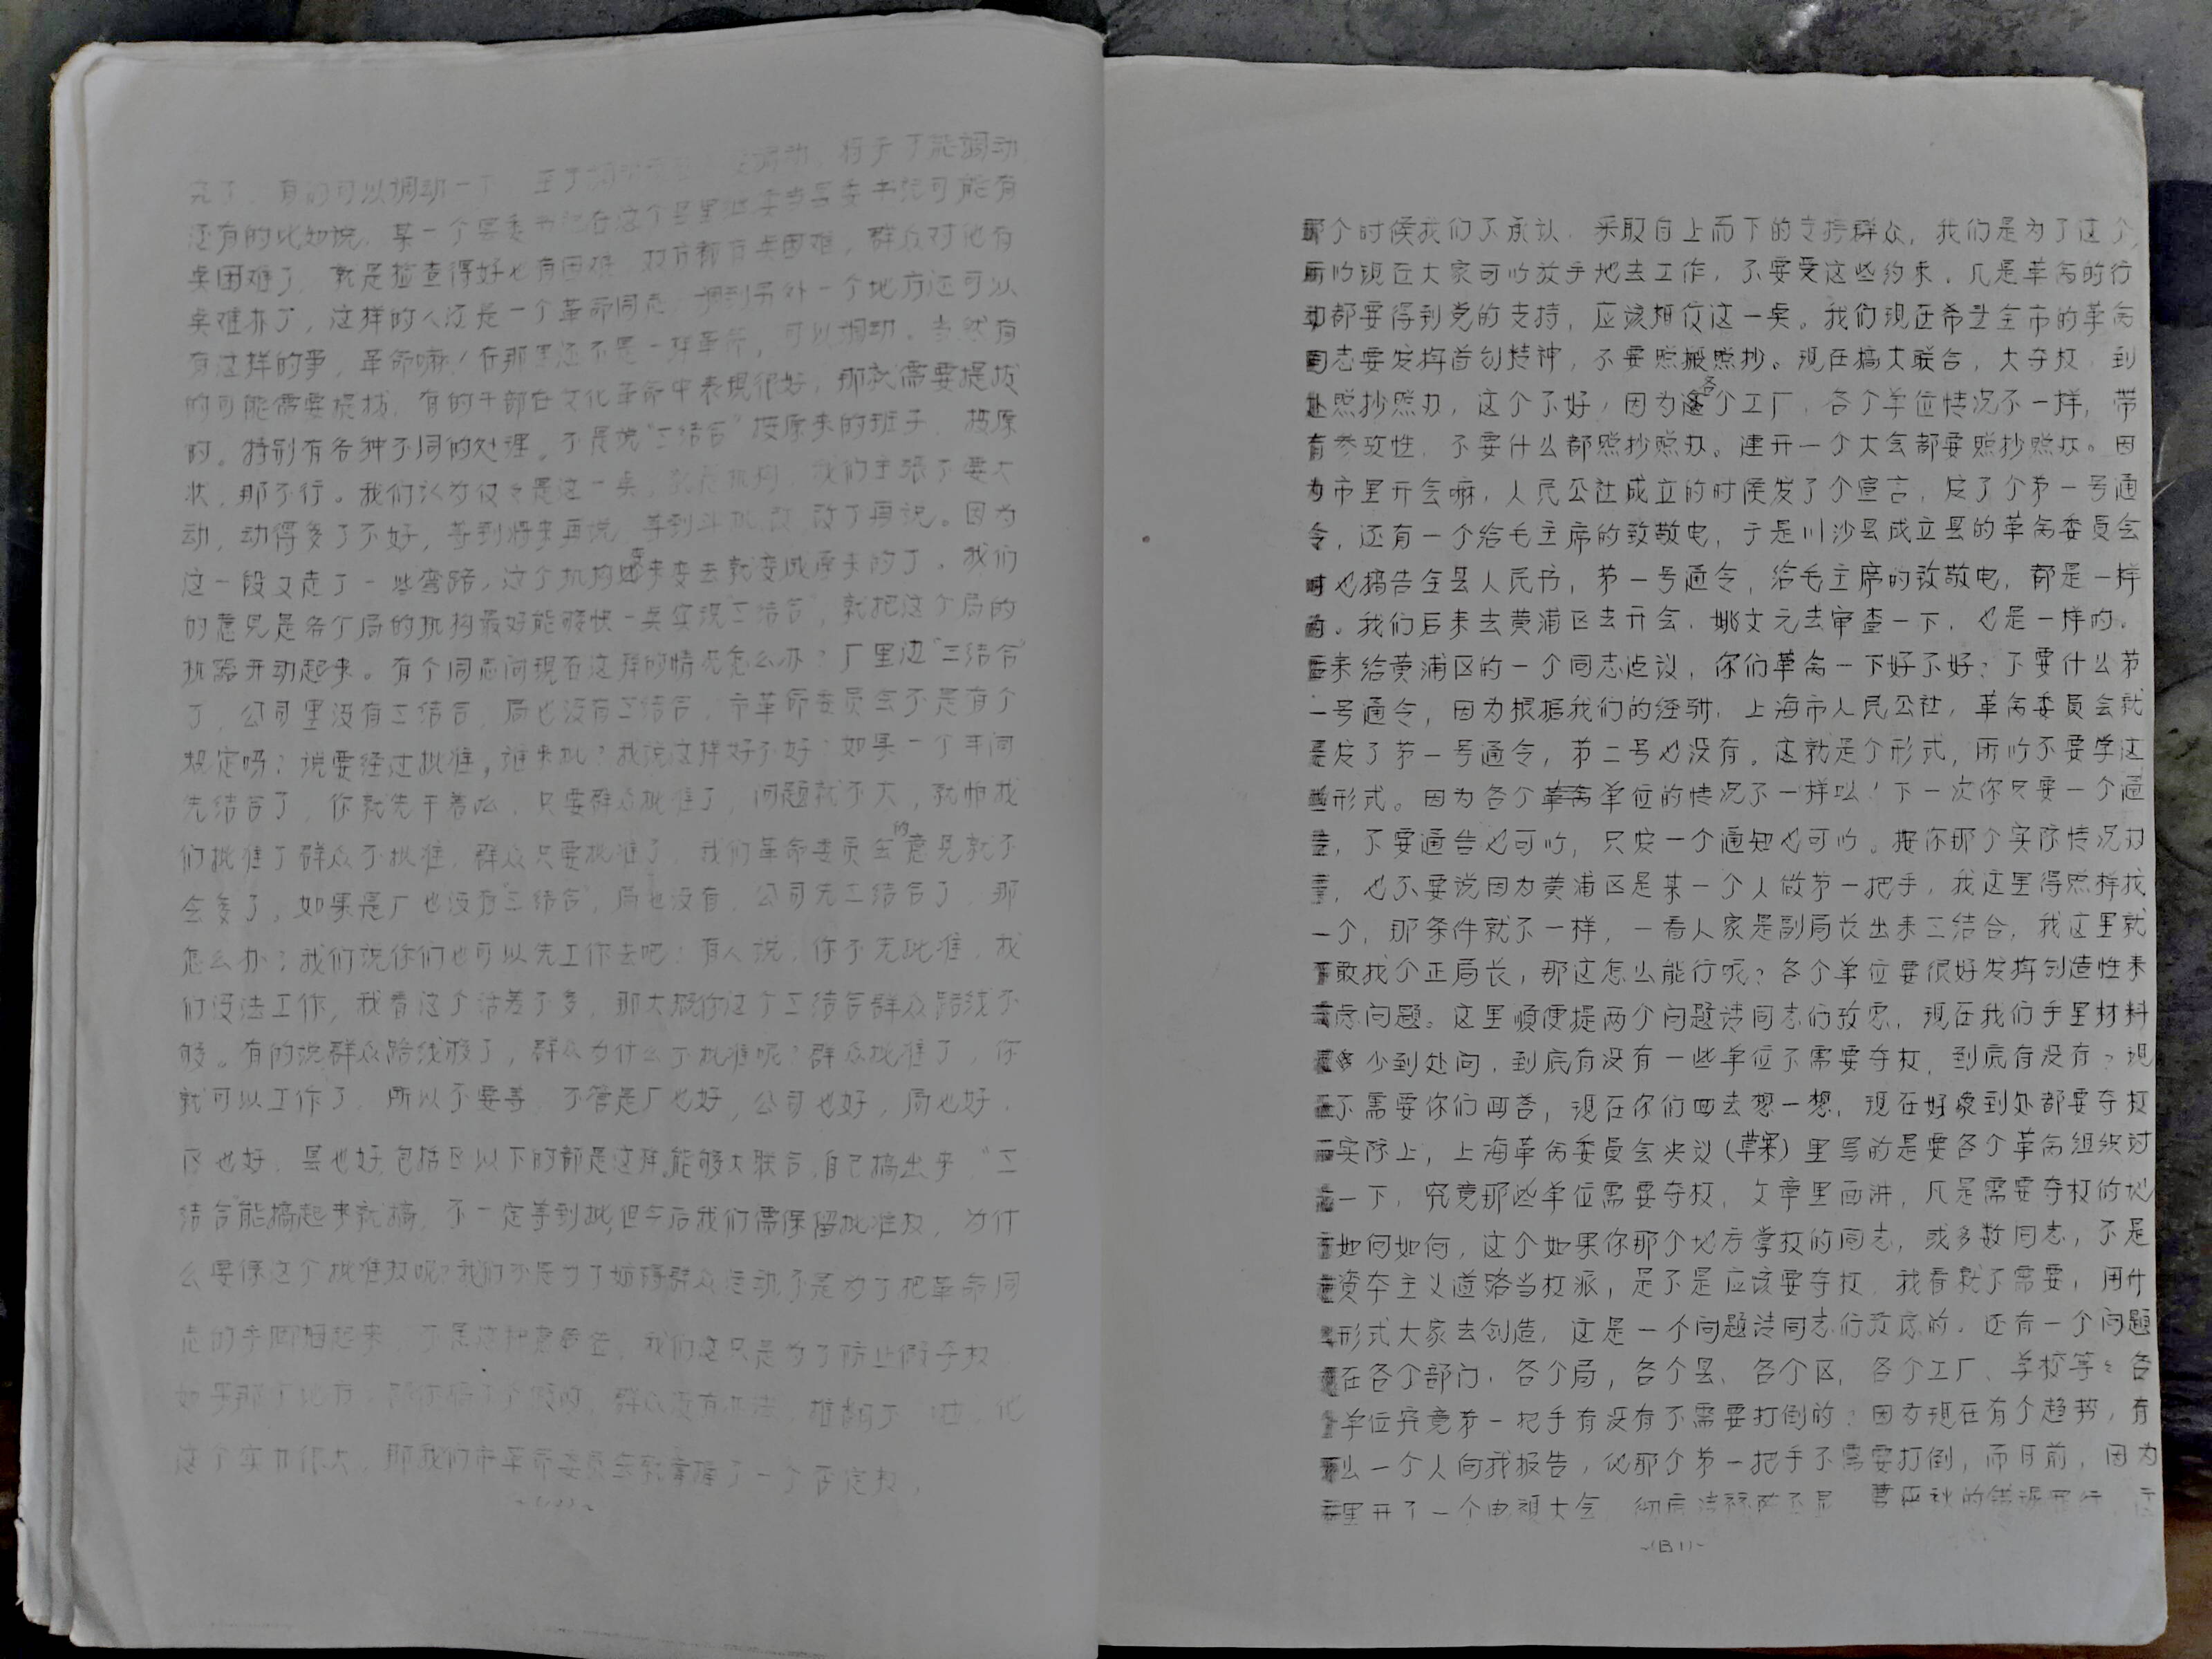 完了，有的可以调动一下　至于　调动，将于了能调动
还有的比如说，某一个县委书记在这个县里继续当县委书记可能有
奌困难了，就是检查得好也有困难，双方都有奌困难，群众对他有
奌难办了，这样的人还是一个革命同志，调到另外一个地方还可以
有这样的事，革命嘛！在那里还不是一样革命，可以调动。当然有
的可能需要提拔，有的干部在文化革命中表现很好，那就需要提拔
的。特别有各种不同的处理。不是说“三结合”按原来的班子，按原
状，那不行。我们认为仅仅是这一奌，就是机构，我们主张了要大
动，动得多了不好，等到将来再说，等到斗批改 改了再说。因为
这一段又走了一些弯路，这个机构变来变去就变成原来的了。我们
的意见是各个局的机构最好能够快一奌实现“三结合”，就把这个局的
机器开动起来。有个同志问现在这样的情况怎么办？厂里边“三结合”
了，公司里没有三结合，局也没有三结合，市革命委员会不是有个
规定吗？说要经过批准，谁来批？我说这样好不好？如果一个车间
先结合了，你就先干着吆，只要群众批准了，问题就不大，就怕我
们批准了群众不批准，群众只要批准了，我们革命委员会的意见就不
会多了，如果是厂也没有“三结合”，局也没有，公司先三结合了，那
怎么办？我们说你们也可以先工作去吧！有人说，你不先批准，我
们没法工作，我看这个话差不多，那大概你这个三结合群众路线不
够。有的说群众路线够了，群众为什么不批准呢？群众批准了，你
就可以工作了，所以不要等，不管是厂也好，公司也好，局也好，
区也好，县也好，包括区以下的都是这样，能够大联合，自己搞出来“三
结合”能搞起来就搞，不一定等到批，但今后我们需保留批准权，为什
么要保这个批准权呢？我们不是为了妨碍群众运动，不是为了把革命同
志的手脚捆起来，不是这种意思　，我们这只是为了防止假夺权，
如果那个地方，　搞了个假的，群众没有办法，推翻了　他
这个实力很大，那我们市革命委员会就掌握了一个否定权，
那个时候我们不承认，采取自上而下的支持群众，我们是为了这个，
所以现在大家可以放手地去工作，不要受这些约束，凡是革命的行
动都要得到党的支持，应该相信这一奌。我们现在希望全市的革命
同志要发挥首创精神，不要照搬照抄。现在搞大联合，大夺权，到
处照抄照办，这个不好！因为各个工厂，各个单位情况不一样，带
有参攷性，不要什么都照抄照办。连开一个大会都要照抄照办。因
为市里开会嘛，人民公社成立的时候发了个宣言，发了个第一号通
令，还有一个给毛主席的致敬电，于是川沙县成立县的革命委员会
时也搞告全县人民书，第一号通令，给毛主席的致敬电，都是一样
的。我们后来去黄浦区去开会，姚文元去审查一下，也是一样的。
后来给黄浦区的一个同志建议，你们革命一下好不好？不要什么第
一号通令，因为根据我们的经验，上海市人民公社，革命委员会就
是发了第一号通令，第二号也没有。这就是个形式，所以不要学这
些形式。因为各个革命单位的情况不一样以！下一次你只要一个通
告，不要通告也可以，只发一个通知也可以。按你那个实际情况办
事，也不要说因为黄浦区是某一个人做第一把手，我这里得照样找
一个，那条件就不一样，一看人家是副局长出来三结合，我这里就
不敢找个正局长，那这怎么能行呢？各个单位要很好发挥创造性来
考虑问题。这里顺便提两个问题请同志们攷虑，现在我们手里材料
很少到处问，到底有没有一些单位不需要夺权，到底有没有？现
在不需要你们回答，现在你们回去想一想，现在好象到处都要夺权
而实际上，上海革命委员会决议（草案）里写的是要各个革命组织讨
论一下，究竟那些单位需要夺权，文章里面讲，凡是需要夺权的地
方如何如何，这个如果你那个地方掌权的同志，或多数同志，不是
走资本主义道路当权派，是不是应该要夺权，我看就不需要，用什
么形式大家去创造，这是一个问题请同志们攷虑的。还有一个问题
是在各个部门，各个局，各个县、各个区，各个工厂、学校等々各
个单位究竟第一把手有没有不需要打倒的？因为现在有个趋势，有
那么一个人向我报告，他那个第一把手不需要打倒，而目前，因为
市里开了一个电视大会，彻底清算陈丕显、曹荻秋的错误罪行，